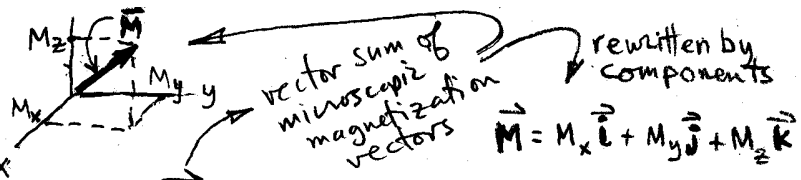 M⃗
M_z
M_y y
M_x
x
vector sum of
microscopic
magnetization
vectors
rewritten by
components
M⃗ = M_x i⃗ + M_y j⃗ + M_z k⃗